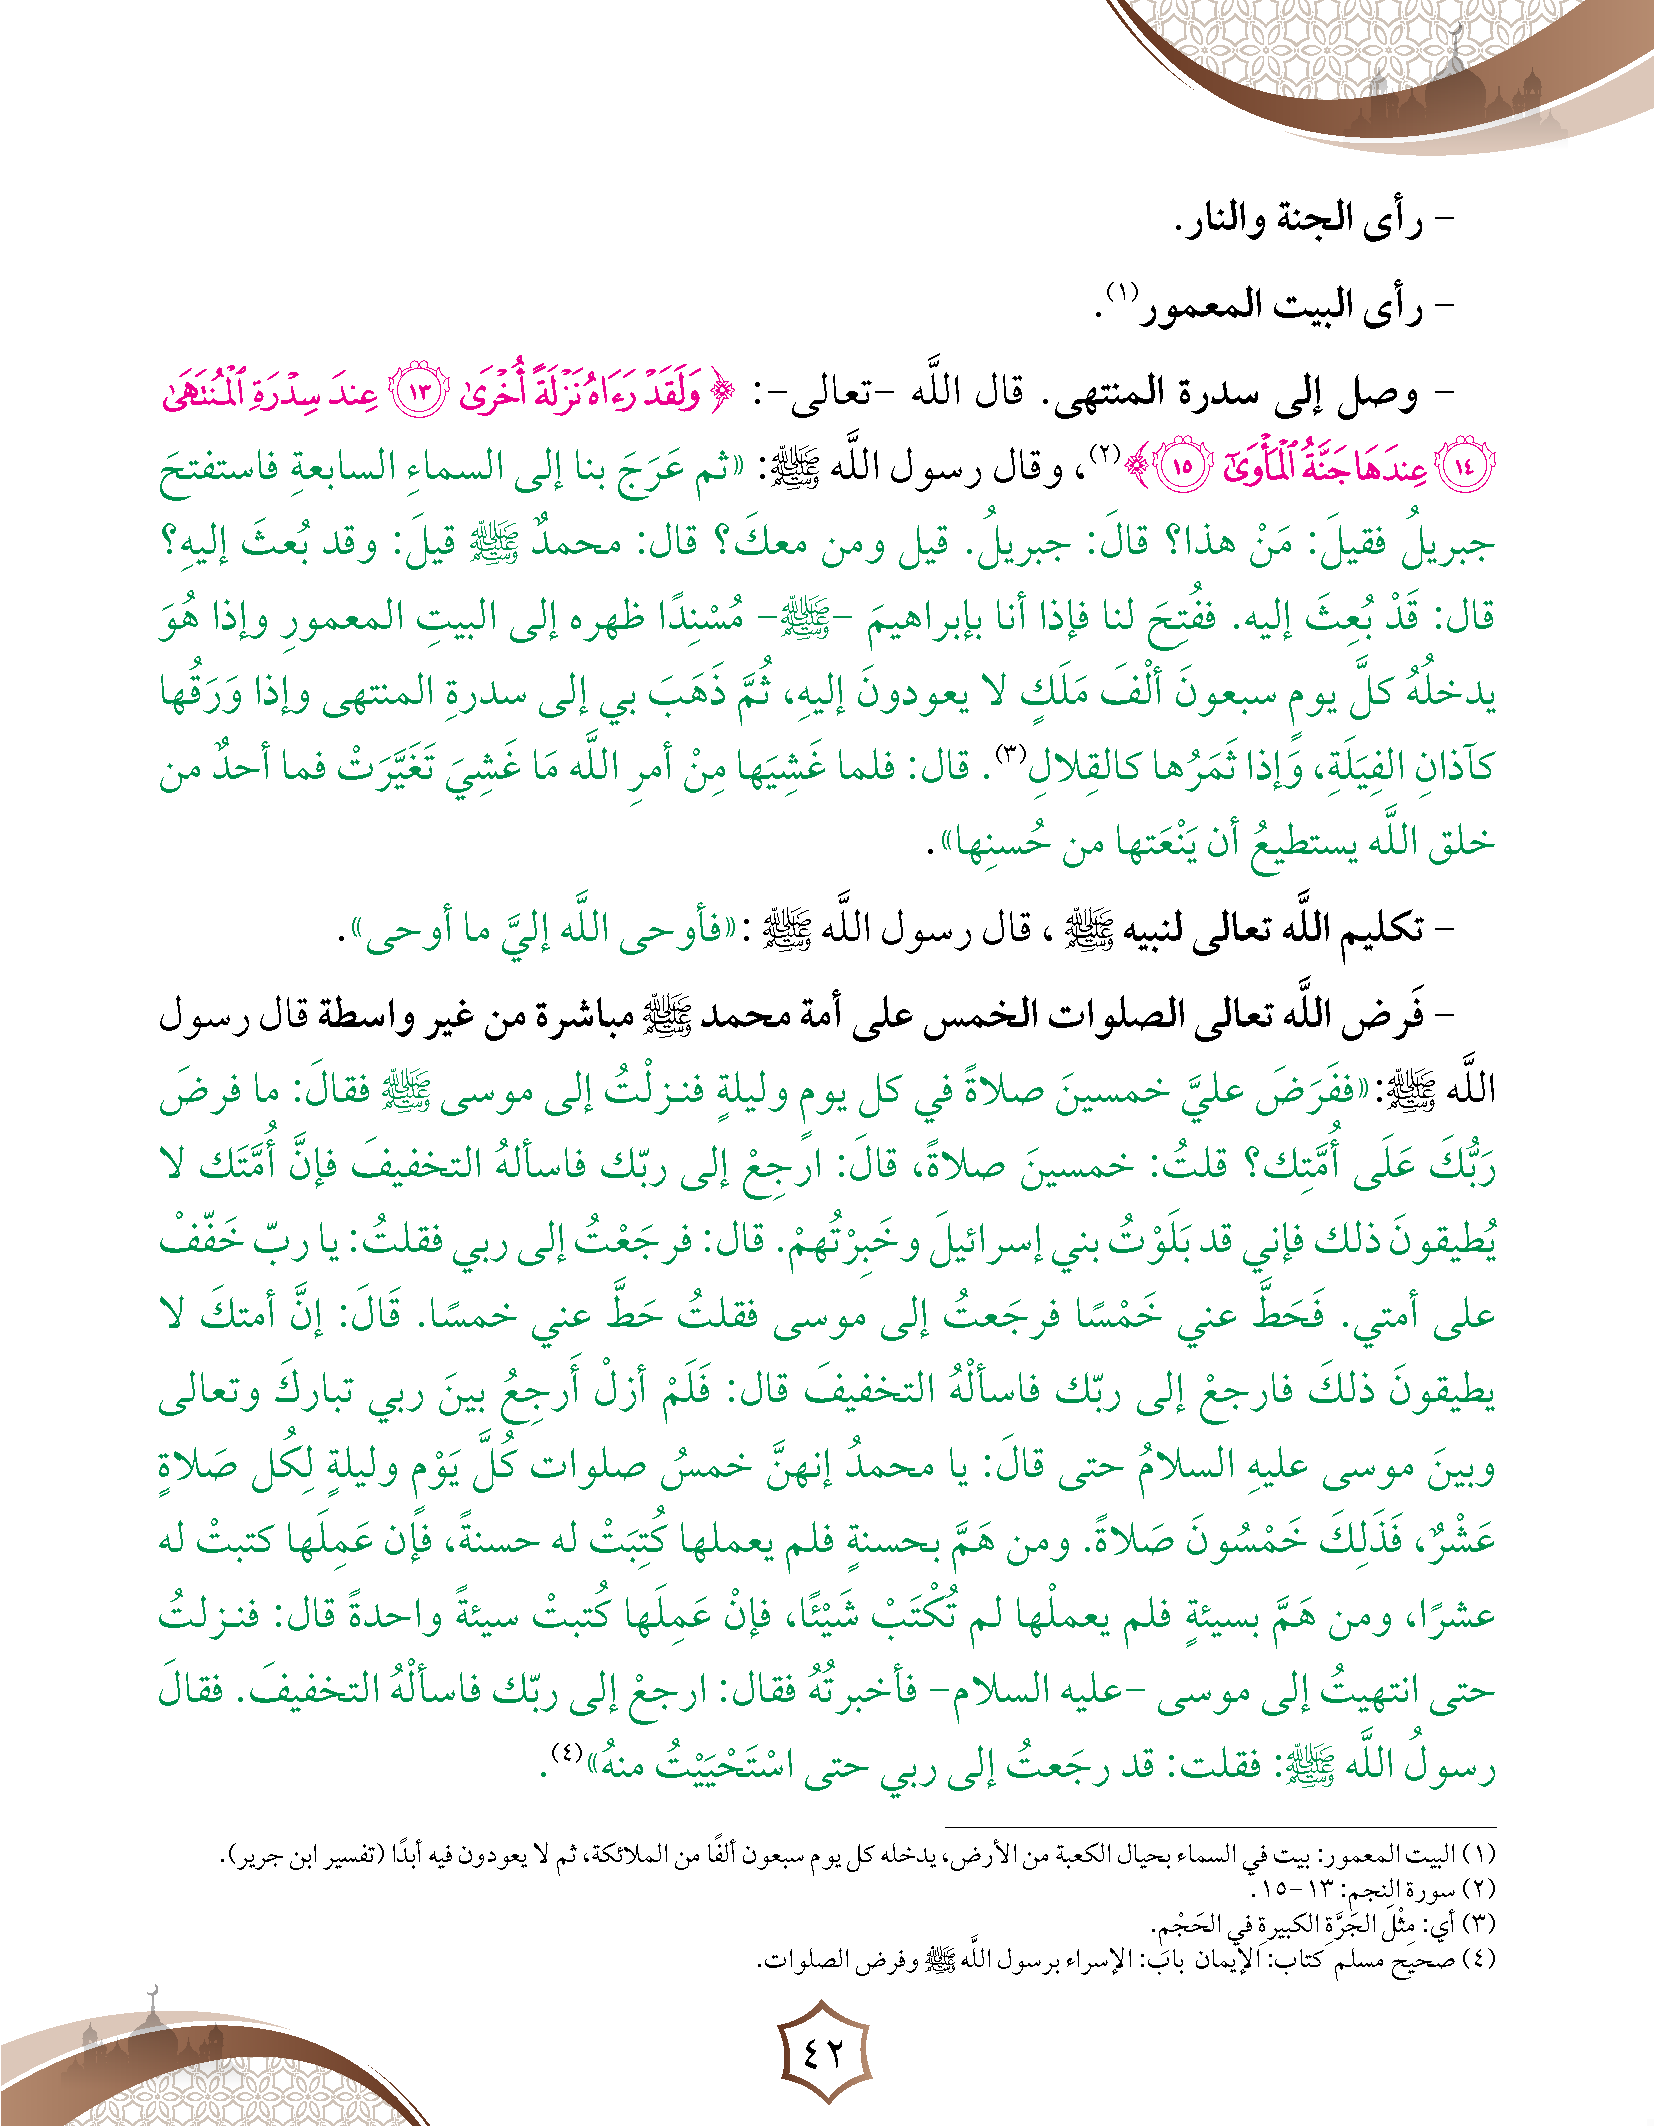 - رأى الجنة والنار.
- رأى البيت المعمور(١).
- وصل إلى سدرة المنتهى. قال اللَّه -تعالى-: ﴿وَلَقَدْ رَءَاهُ نَزْلَةً أُخْرَىٰ ١٣ عِندَ سِدْرَةِ ٱلْمُنتَهَىٰ
١٤ عِندَهَا جَنَّةُ ٱلْمَأْوَىٰٓ ١٥﴾(٢)، وقال رسول اللَّه ﷺ: «ثم عَرَجَ بنا إلى السماءِ السابعةِ فاستفتحَ
جبريلُ فقيلَ: مَنْ هذا؟ قالَ: جبريلُ. قيل ومن معكَ؟ قال: محمدٌ ﷺ قيلَ: وقد بُعثَ إليهِ؟
قال: قَدْ بُعِثَ إليه. ففُتِحَ لنا فإذا أنا بإبراهيمَ -ﷺ- مُسْنِدًا ظهره إلى البيتِ المعمورِ وإذا هُوَ
يدخلُهُ كلَّ يومٍ سبعونَ أَلْفَ مَلَكٍ لا يعودونَ إليهِ، ثُمَّ ذَهَبَ بي إلى سدرةِ المنتهى وإذا وَرَقُها
كآذانِ الفِيَلَةِ، وَإذا ثَمَرُها كالقِلالِ(٣). قال: فلما غَشِيَها مِنْ أمرِ اللَّه مَا غَشِيَ تَغَيَّرَتْ فما أحدٌ من
خلق اللَّه يستطيعُ أن يَنْعَتها من حُسنِها».
- تكليم اللَّه تعالى لنبيه ﷺ ، قال رسول اللَّه ﷺ :«فأوحى اللَّه إليَّ ما أوحى».
- فَرض اللَّه تعالى الصلوات الخمس على أمة محمد ﷺ مباشرة من غير واسطة قال رسول
اللَّه ﷺ:«ففَرَضَ عليَّ خمسينَ صلاةً في كل يومٍ وليلةٍ فنـزلْتُ إلى موسى ﷺ فقالَ: ما فرضَ
رَبُّكَ عَلَى أُمَّتِك؟ قلتُ: خمسينَ صلاةً، قالَ: ارجِعْ إلى ربّك فاسألهُ التخفيفَ فإنَّ أُمَّتَك لا
يُطيقونَ ذلك فإني قد بَلَوْتُ بني إسرائيلَ وخَبِرْتُهمْ. قال: فرجَعْتُ إلى ربي فقلتُ: يا ربّ خَفّفْ
على أمتي. فَحَطَّ عني خَمْسًا فرجَعتُ إلى موسى فقلتُ حَطَّ عني خمسًا. قَالَ: إنَّ أمتكَ لا
يطيقونَ ذلكَ فارجعْ إلى ربّك فاسألْهُ التخفيفَ قال: فَلَمْ أزلْ أَرجِعُ بينَ ربي تباركَ وتعالى
وبينَ موسى عليهِ السلامُ حتى قالَ: يا محمدُ إنهنَّ خمسُ صلوات كُلَّ يَوْمٍ وليلةٍ لِكُل صَلاةٍ
عَشْرٌ، فَذَلِكَ خَمْسُونَ صَلاةً. ومن هَمَّ بحسنةٍ فلم يعملها كُتِبَتْ له حسنةً، فإن عَمِلَها كتبتْ له
عشرًا، ومن هَمَّ بسيئةٍ فلم يعملْها لم تُكْتَبْ شَيْئًا، فإنْ عَمِلَها كُتبتْ سيئةً واحدةً قال: فنـزلتُ
حتى انتهيتُ إلى موسى -عليه السلام- فأخبرتُهُ فقال: ارجعْ إلى ربّك فاسألْهُ التخفيفَ. فقالَ
رسولُ اللَّه ﷺ: فقلت: قد رجَعتُ إلى ربي حتى اسْتَحْيَيْتُ منهُ»(٤).
(١) البيت المعمور: بيت في السماء بحيال الكعبة من الأرض، يدخله كل يوم سبعون ألفًا من الملائكة، ثم لا يعودون فيه أبدًا (تفسير ابن جرير).
(٢) سورة النجم: ١٣-١٥.
(٣) أي: مِثْلَ الجَرَّةِ الكبيرةِ في الحَجْم.
(٤) صحيح مسلم كتاب: الإيمان باب: الإسراء برسول اللَّه ﷺ وفرض الصلوات.
٤٢